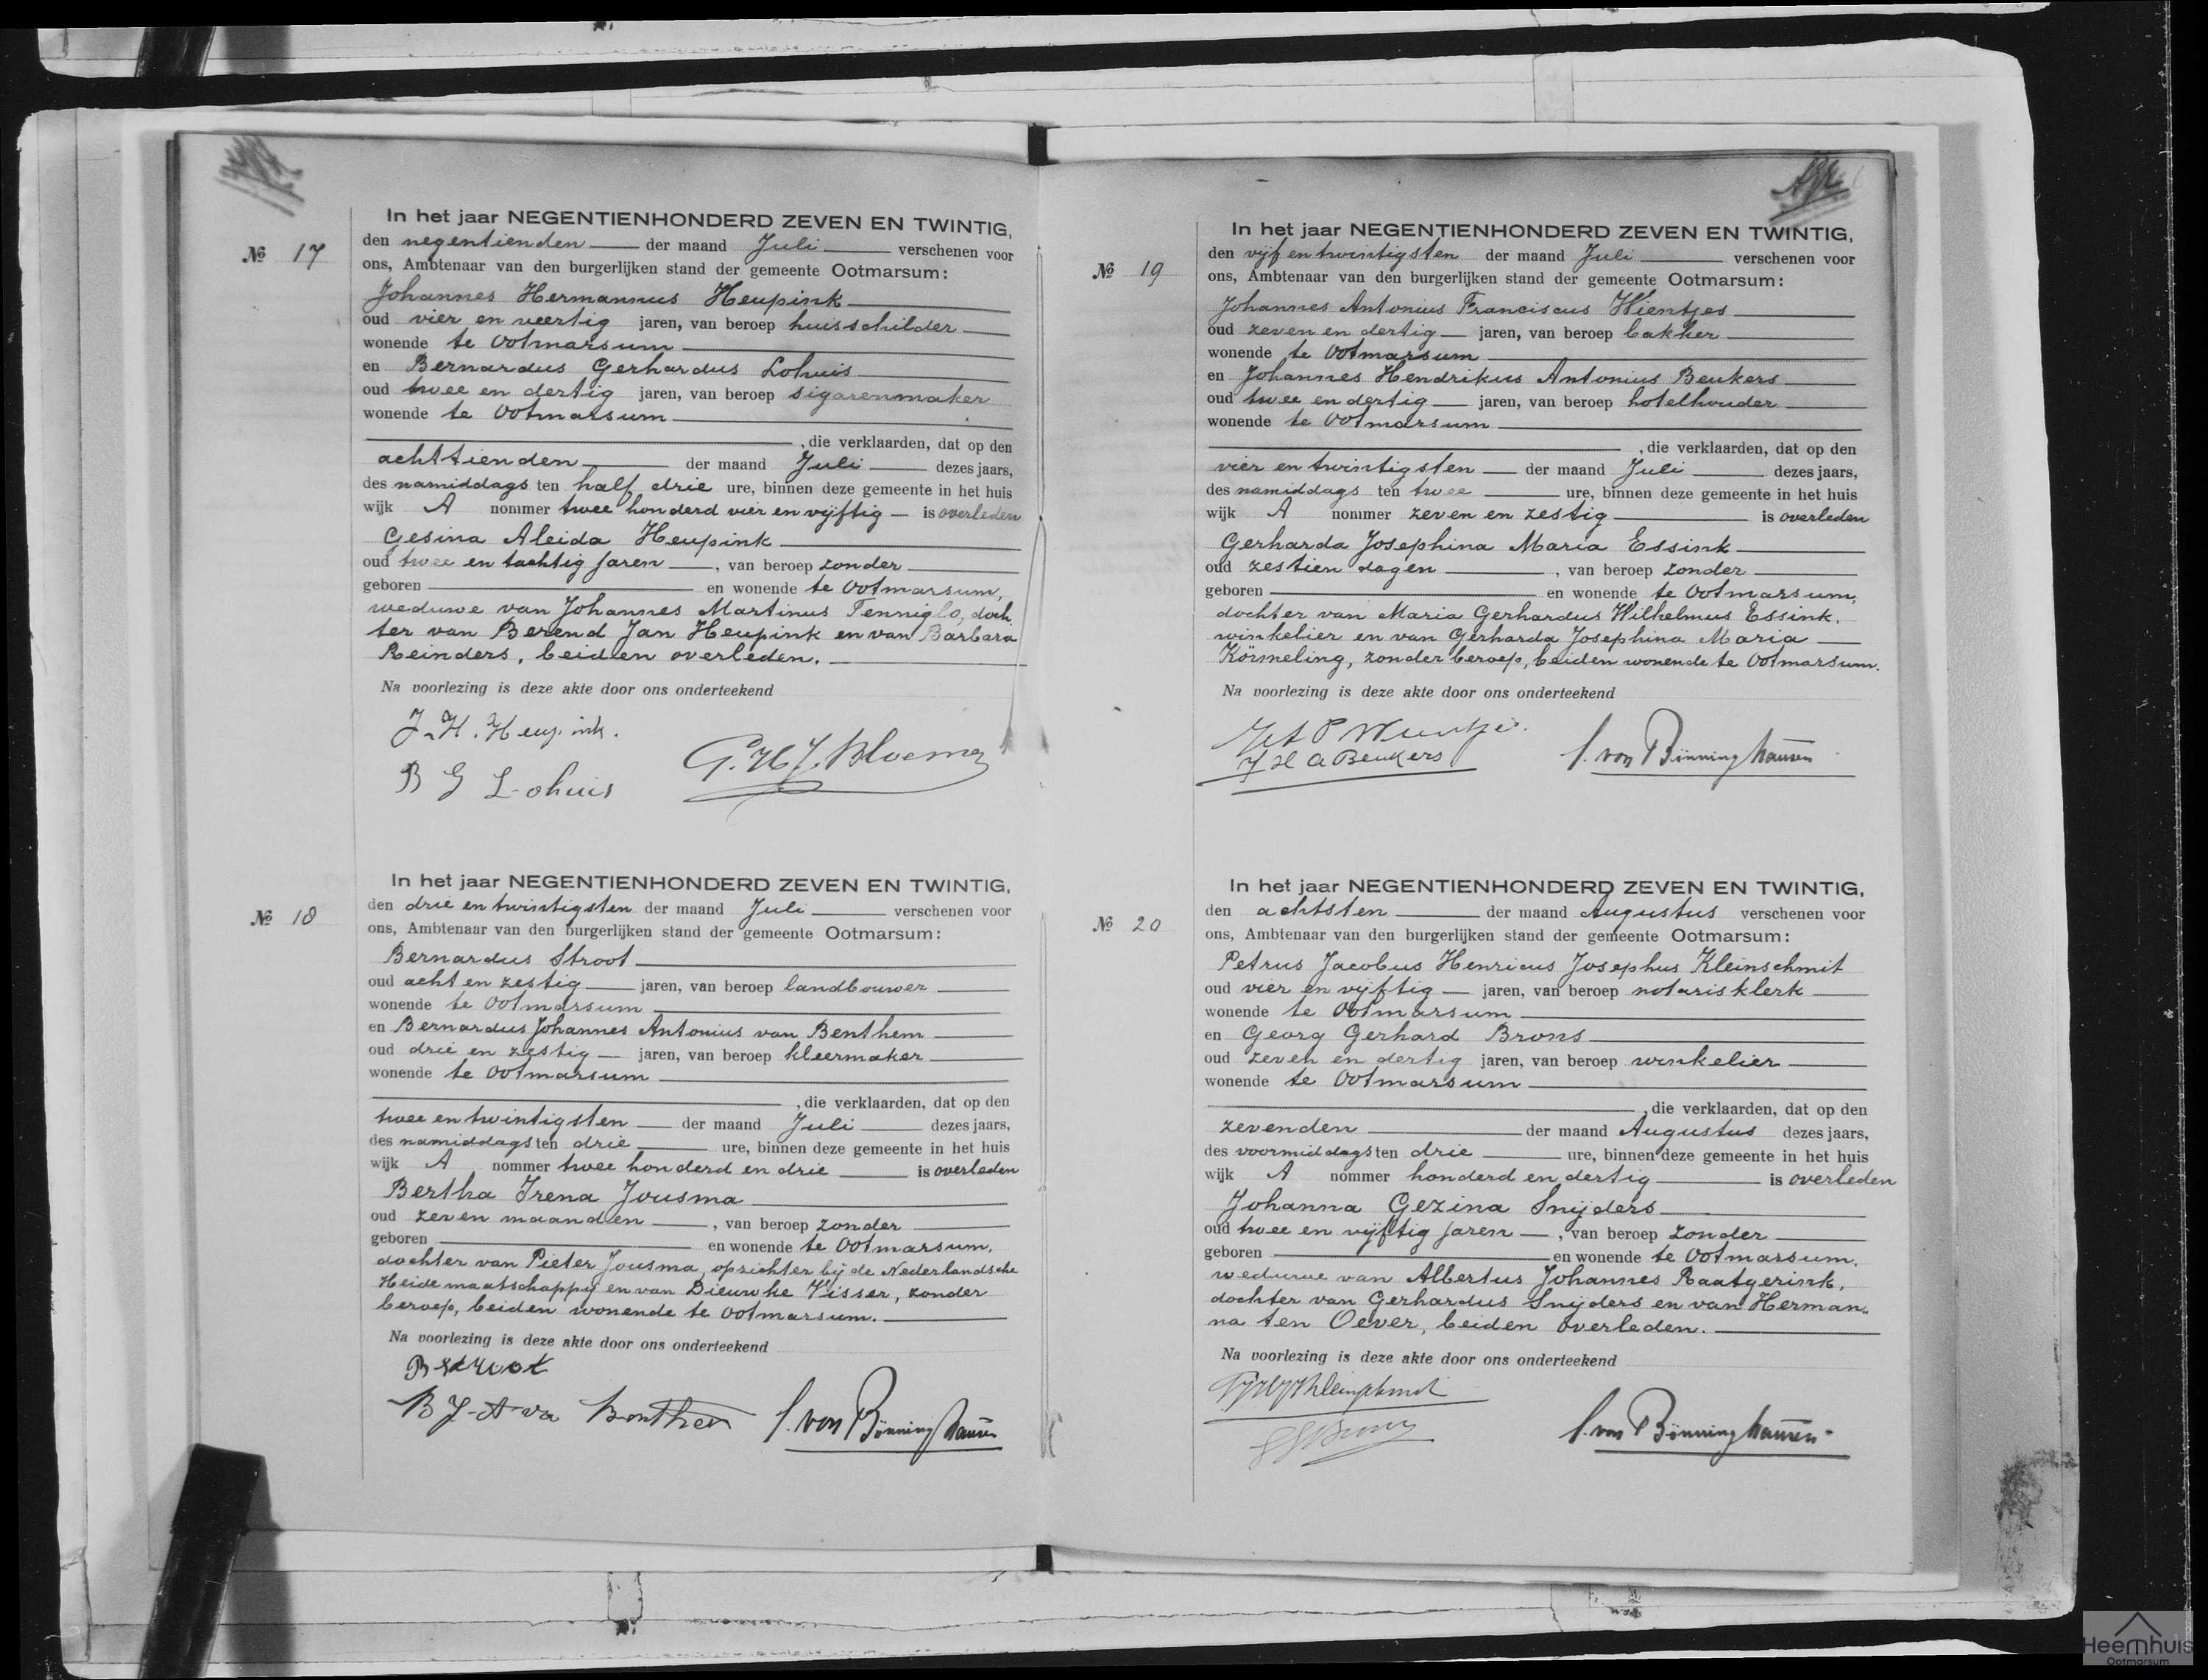 In het jaar NEGENTIENHONDERD ZEVEN EN TWINTIG,
Nº 17
den negentienden der maand Juli verschenen voor
ons, Ambtenaar van den burgerlijken stand der gemeente Ootmarsum:
Johannes Hermannus Heupink
oud vier en veertig jaren, van beroep huisschilder
wonende te Ootmarsum
en Bernardus Gerhardus Lohuis
oud twee en dertig jaren, van beroep sigarenmaker
wonende te Ootmarsum
, die verklaarden, dat op den
achttienden der maand Juli dezes jaars,
des namiddags ten half drie ure, binnen deze gemeente in het huis
wijk A nommer twee honderd vier en vijftig is overleden
Gesina Aleida Heupink
oud twee en tachtig jaren, van beroep zonder
geboren en wonende te Ootmarsum,
weduwe van Johannes Martinus Tenniglo, doch
ter van Berend Jan Heupink en van Barbara
Reinders, beiden overleden.
Na voorlezing is deze akte door ons onderteekend
J. H. Heupink.
G. H. J. Bloemen
B G Lohuis
In het jaar NEGENTIENHONDERD ZEVEN EN TWINTIG,
Nº 18
den drie en twintigsten der maand Juli verschenen voor
ons, Ambtenaar van den burgerlijken stand der gemeente Ootmarsum:
Bernardus Stroot
oud acht en zestig jaren, van beroep landbouwer
wonende te Ootmarsum
en Bernardus Johannes Antonius van Benthem
oud drie en zestig jaren, van beroep kleermaker
wonende te Ootmarsum
, die verklaarden, dat op den
twee en twintigsten der maand Juli dezes jaars,
des namiddags ten drie ure, binnen deze gemeente in het huis
wijk A nommer twee honderd en drie is overleden
Bertha Irena Jousma
oud zeven maanden, van beroep zonder
geboren en wonende te Ootmarsum,
dochter van Pieter Jousma, opzichter bij de Nederlandsche
Heidemaatschappij en van Dieuwke Visser, zonder
beroep, beiden wonende te Ootmarsum.
Na voorlezing is deze akte door ons onderteekend
B Stroot
B J A va Benthem
S. von Bönninghausen
In het jaar NEGENTIENHONDERD ZEVEN EN TWINTIG,
Nº 19
den vijf en twintigsten der maand Juli verschenen voor
ons, Ambtenaar van den burgerlijken stand der gemeente Ootmarsum:
Johannes Antonius Franciscus Wientjes
oud zeven en dertig jaren, van beroep bakker
wonende te Ootmarsum
en Johannes Hendrikus Antonius Beukers
oud twee en dertig jaren, van beroep hotelhouder
wonende te Ootmarsum
, die verklaarden, dat op den
vier en twintigsten der maand Juli dezes jaars,
des namiddags ten twee ure, binnen deze gemeente in het huis
wijk A nommer zeven en zestig is overleden
Gerharda Josephina Maria Essink
oud zestien dagen, van beroep zonder
geboren en wonende te Ootmarsum,
dochter van Maria Gerhardus Wilhelmus Essink,
winkelier en van Gerharda Josephina Maria
Körmeling, zonder beroep, beiden wonende te Ootmarsum.
Na voorlezing is deze akte door ons onderteekend
J H A Beukers
S. von Bönninghausen
In het jaar NEGENTIENHONDERD ZEVEN EN TWINTIG,
Nº 20
den achtsten der maand Augustus verschenen voor
ons, Ambtenaar van den burgerlijken stand der gemeente Ootmarsum:
Petrus Jacobus Henricus Josephus Kleinschmit
oud vier en vijftig jaren, van beroep notarisklerk
wonende te Ootmarsum
en Georg Gerhard Brons
oud zeven en dertig jaren, van beroep winkelier
wonende te Ootmarsum
, die verklaarden, dat op den
zevenden der maand Augustus dezes jaars,
des voormiddags ten drie ure, binnen deze gemeente in het huis
wijk A nommer honderd en dertig is overleden
Johanna Gezina Snijders
oud twee en vijftig jaren, van beroep zonder
geboren en wonende te Ootmarsum,
weduwe van Albertus Johannes Raatgerink,
dochter van Gerhardus Snijders en van Herman„
na ten Oever, beiden overleden.
Na voorlezing is deze akte door ons onderteekend
S. von Bönninghausen
Heemhuis
Ootmarsum